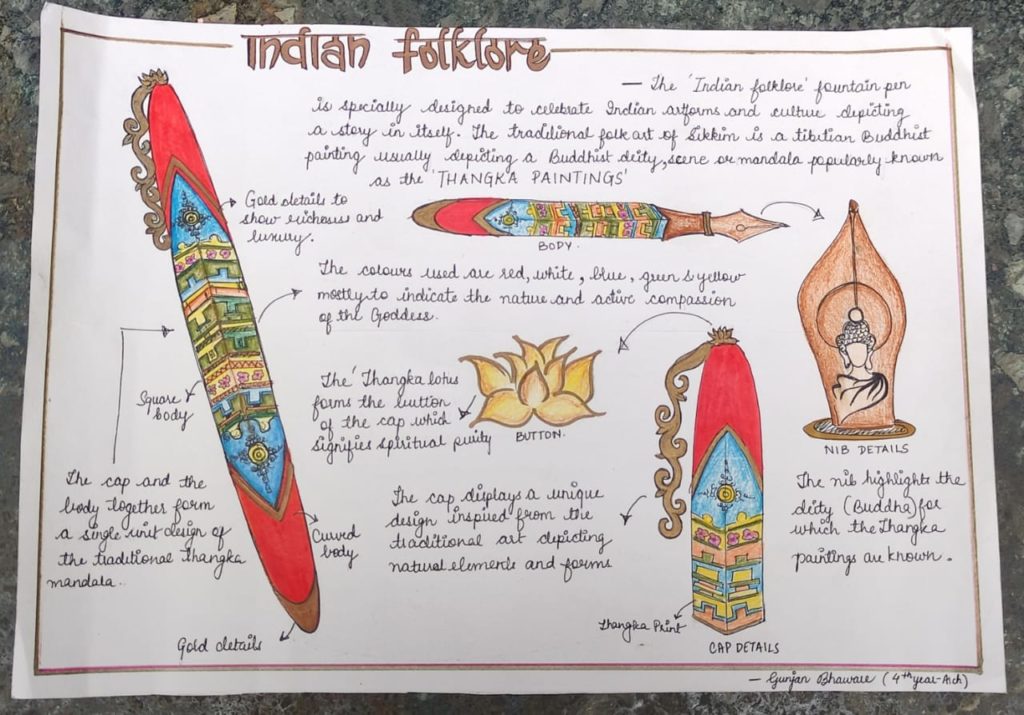 Indian folklore
— The 'Indian folklore' fountain pen
is specially designed to celebrate Indian artforms and culture depicting
a story in itself. The traditional folk art of Sikkim is a tibetian Buddhist
painting usually depicting a Buddhist deity, scene or mandala popularly known
as the 'THANGKA PAINTINGS'
Gold details to
show richness and
luxury.
BODY.
The colours used are red, white, blue, green & yellow
mostly to indicate the nature and active compassion
of the Goddess.
Square
body
The 'Thangka lotus
forms the button
of the cap which
signifies spiritual purity
BUTTON.
NIB DETAILS
The cap and the
body together form
a single unit design of
the traditional thangka
mandala.
Curved
body
The cap displays a unique
design inspired from the
traditional art depicting
natural elements and forms
The nib highlights the
deity (Buddha) for
which the Thangka
paintings are known.
Gold details
Thangka Print
CAP DETAILS
— Gunjan Bhaware (4th year-Arch)